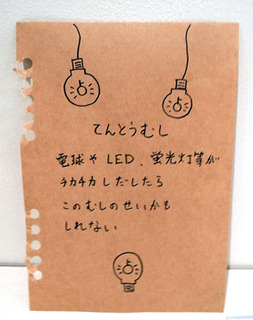 てんとうむし
電球やLED、蛍光灯等が
チカチカしだしたら
このむしのせいかも
しれない